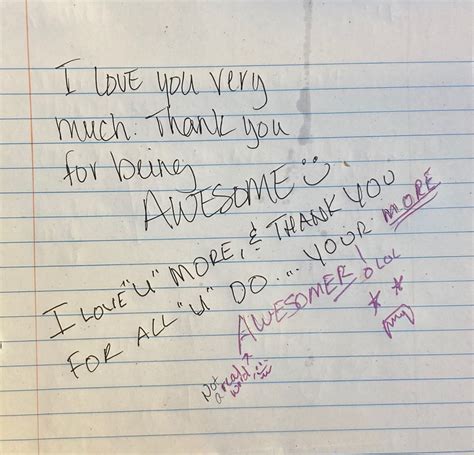 I love you very
much. Thank you
for being
AWESOME
I LOVE "U" MORE, & THANK YOU
FOR ALL "U" DO... YOUR MORE
AWESOMER! LOL
Not
a real
word